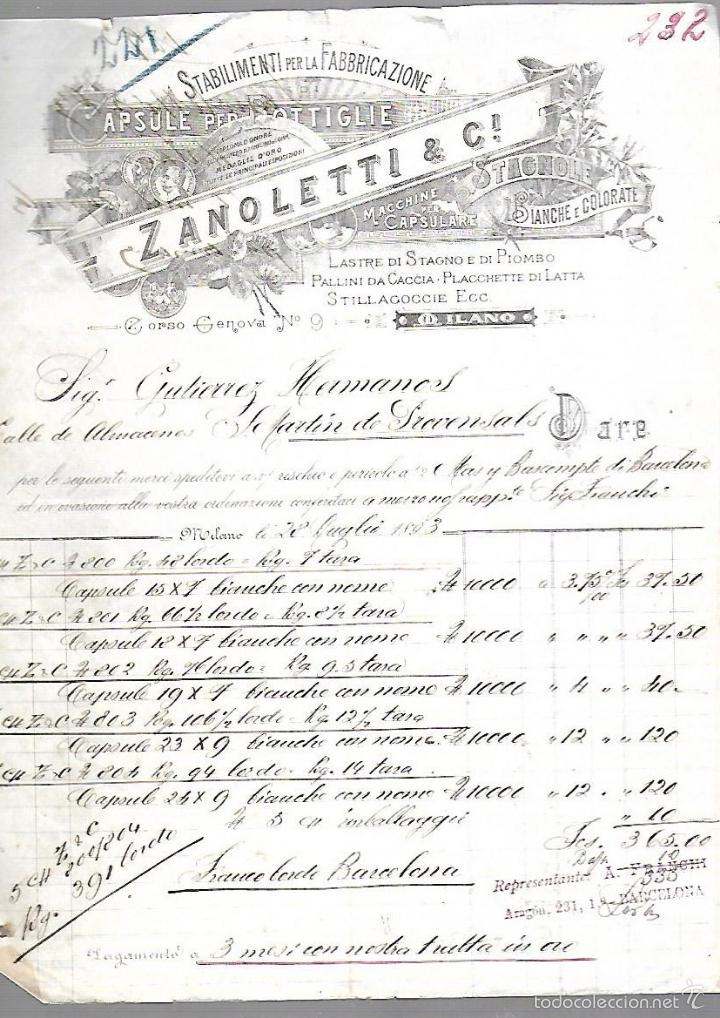 232
221
STABILIMENTI PER LA FABBRICAZIONE
CAPSULE PER BOTTIGLIE
MEDAGLIE D'ORO
ZANOLETTI & Cⁱ
STAGNOLE
MACCHINE PER CAPSULARE
BIANCHE E COLORATE
LASTRE DI STAGNO E DI PIOMBO
PALLINI DA CACCIA · PLACCHETTE DI LATTA
STILLAGOCCIE ECC.
Corso Genova Nº 9
MILANO
Sigʳ Gutierrez Hermanos
Calle de Almacenes S. Martin de Provensals Dare
per le seguenti merci speditevi a vº rischio e pericolo a Mas y Bascompte di Barcelona
ed in evasione alla vostra ordinazione conferitaci a mezzo no rappᵗᵉ Sig Franchi
Milano li 28 Luglio 1893
Z & C # 800 Kg. 48 lordo = Kg. 7 tara
Capsule 15 X 7 bianche con nome # 10000 a 3.75 37.50
Z & C # 801 Kg. 66 ½ lordo = Kg. 8 ½ tara
Capsule 18 X 7 bianche con nome # 10000 " " " " 37.50
Z & C # 802 Kg. 76 lordo = Kg 9.5 tara
Capsule 19 X 7 bianche con nome # 10000 " 4 " " 40.-
Z & C # 803 Kg. 106 ½ lordo = Kg. 12 ½ tara
Capsule 23 X 9 bianche con nome # 10000 " 12 " " 120
Z & C # 804 Kg. 94 lordo = Kg. 14 tara
Capsule 24 X 9 bianche con nome # 10000 " 12 " " 120
# 5 imballaggi " 10
Fcs. 365.00
10
Z & C
800/804
5
Kg. 391 lordo
Franco bordo Barcelona
Representante: A. FRANCHI
Aragón, 231, 1.º - BARCELONA
Pagamento a 3 mesi con nostra tratta in oro
todocoleccion.net